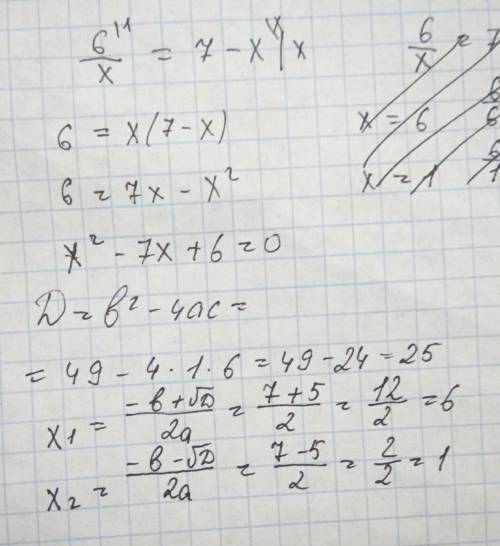 6^{11}/x = 7 - x^{1/}/x
6 = x(7 - x)
6 = 7x - x²
x² - 7x + 6 = 0
D = b² - 4ac =
= 49 - 4 · 1 · 6 = 49 - 24 = 25
x1 = (-b + √D)/2a = (7 + 5)/2 = 12/2 = 6
x2 = (-b - √D)/2a = (7 - 5)/2 = 2/2 = 1
6/x = 7
x = 6
6/6
x = 1
6/1